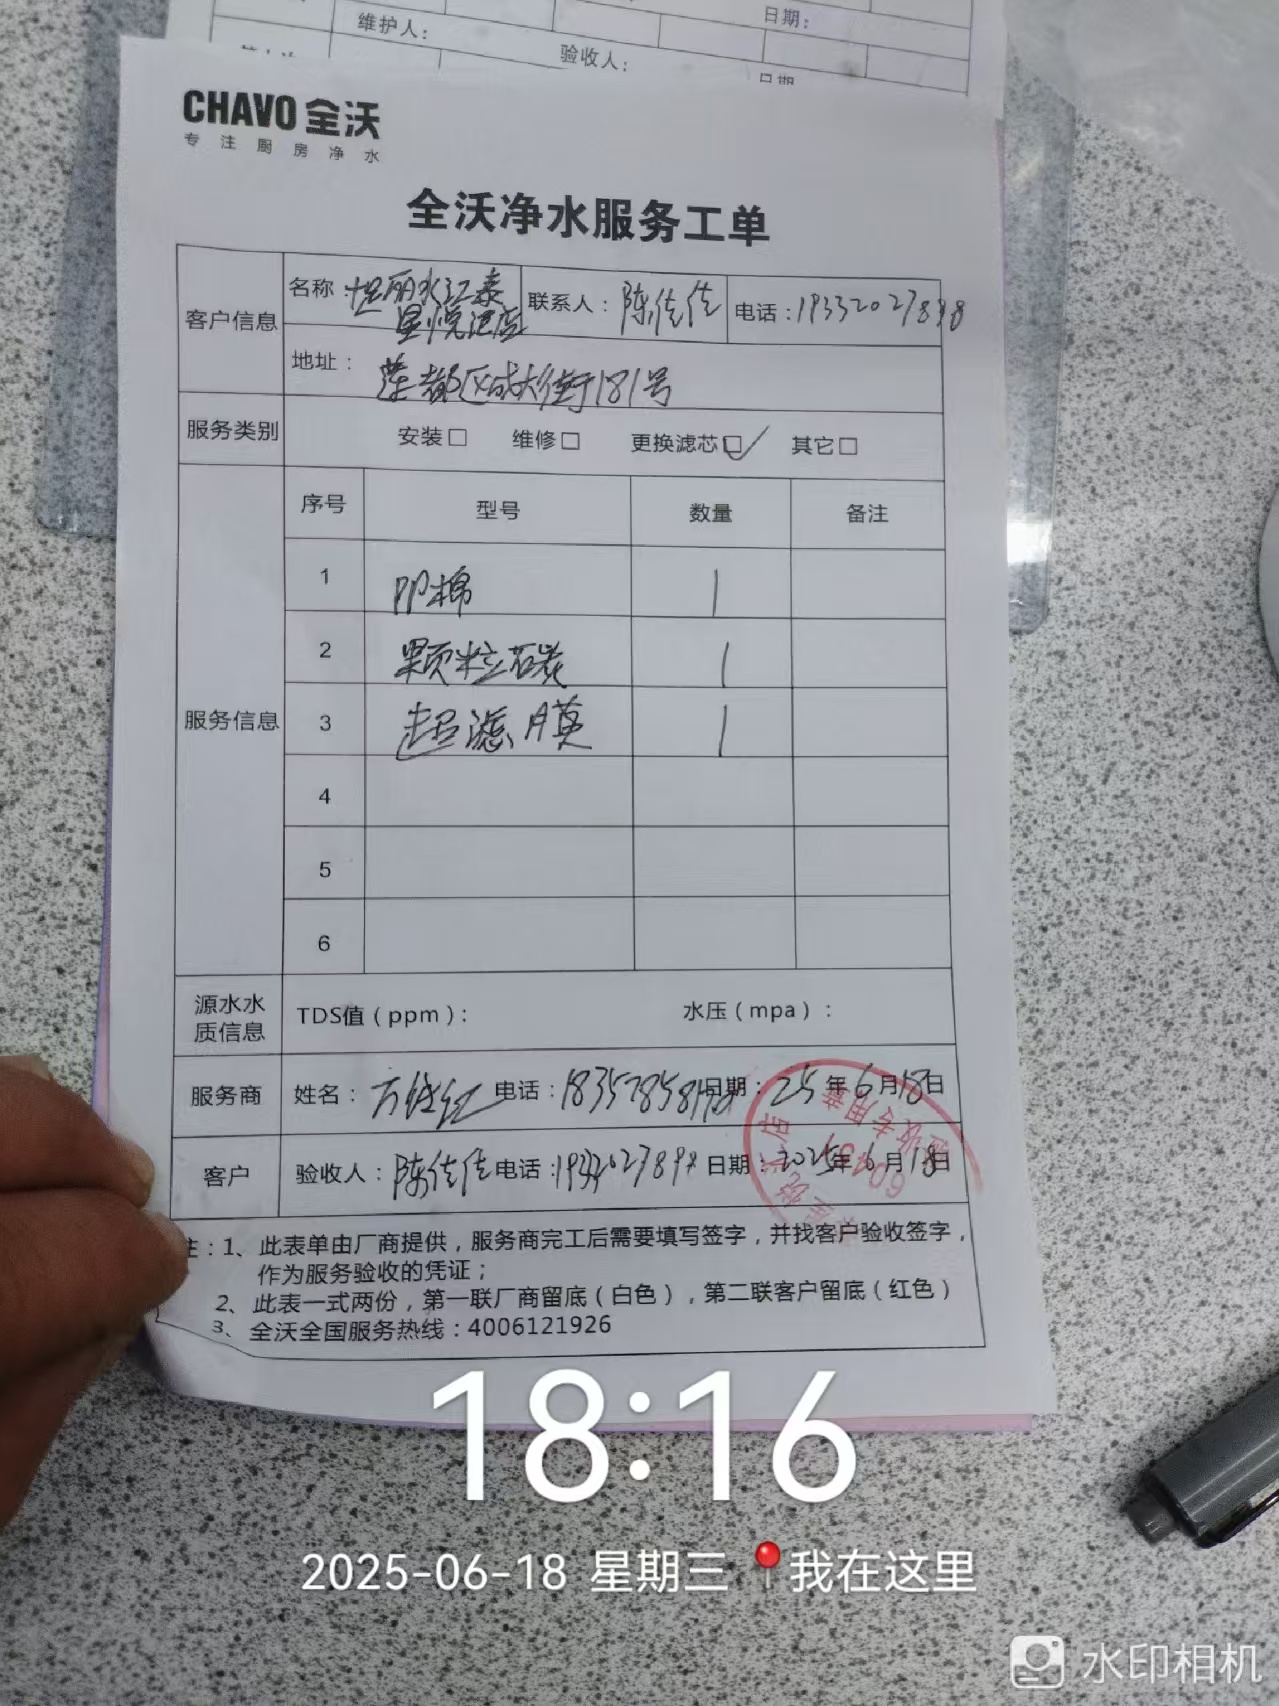 日期：
维护人：
验收人：
日期
CHAVO 全沃
专注厨房净水
全沃净水服务工单
客户信息
名称：恒丽水江泰
星悦酒店
联系人：陈佳佳
电话：19332027898
地址：
莲都区成大街181号
服务类别 安装□ 维修□ 更换滤芯☑ 其它□
服务信息
序号 型号 数量 备注
1 PP棉 1
2 颗粒碳 1
3 超滤膜 1
4
5
6
源水水
质信息
TDS值（ppm）： 水压（mpa）：
服务商 姓名： 电话： 日期：25年6月18日
客户 验收人：陈佳佳 电话：19332027898 日期：2025年6月18日
验收专用章
注：1、此表单由厂商提供，服务商完工后需要填写签字，并找客户验收签字，
作为服务验收的凭证；
2、此表一式两份，第一联厂商留底（白色），第二联客户留底（红色）
3、全沃全国服务热线：4006121926
18:16
2025-06-18 星期三 我在这里
水印相机